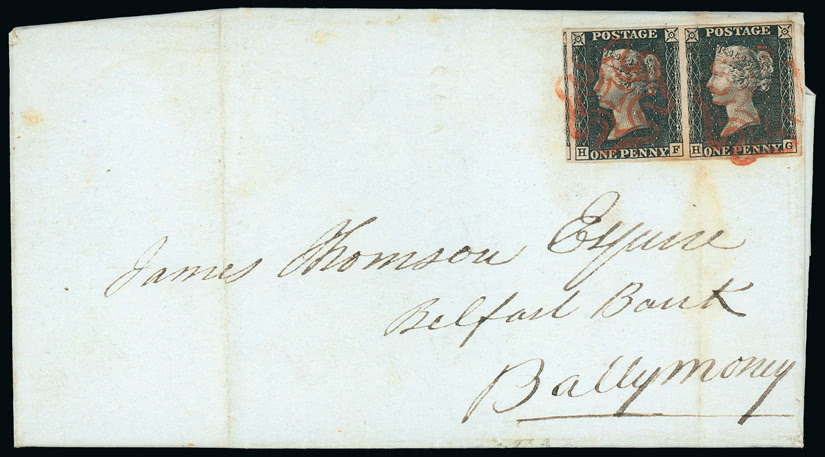 POSTAGE POSTAGE
H ONE PENNY F H ONE PENNY G
James Thomson Esquire
Belfast Bank
Ballymoney